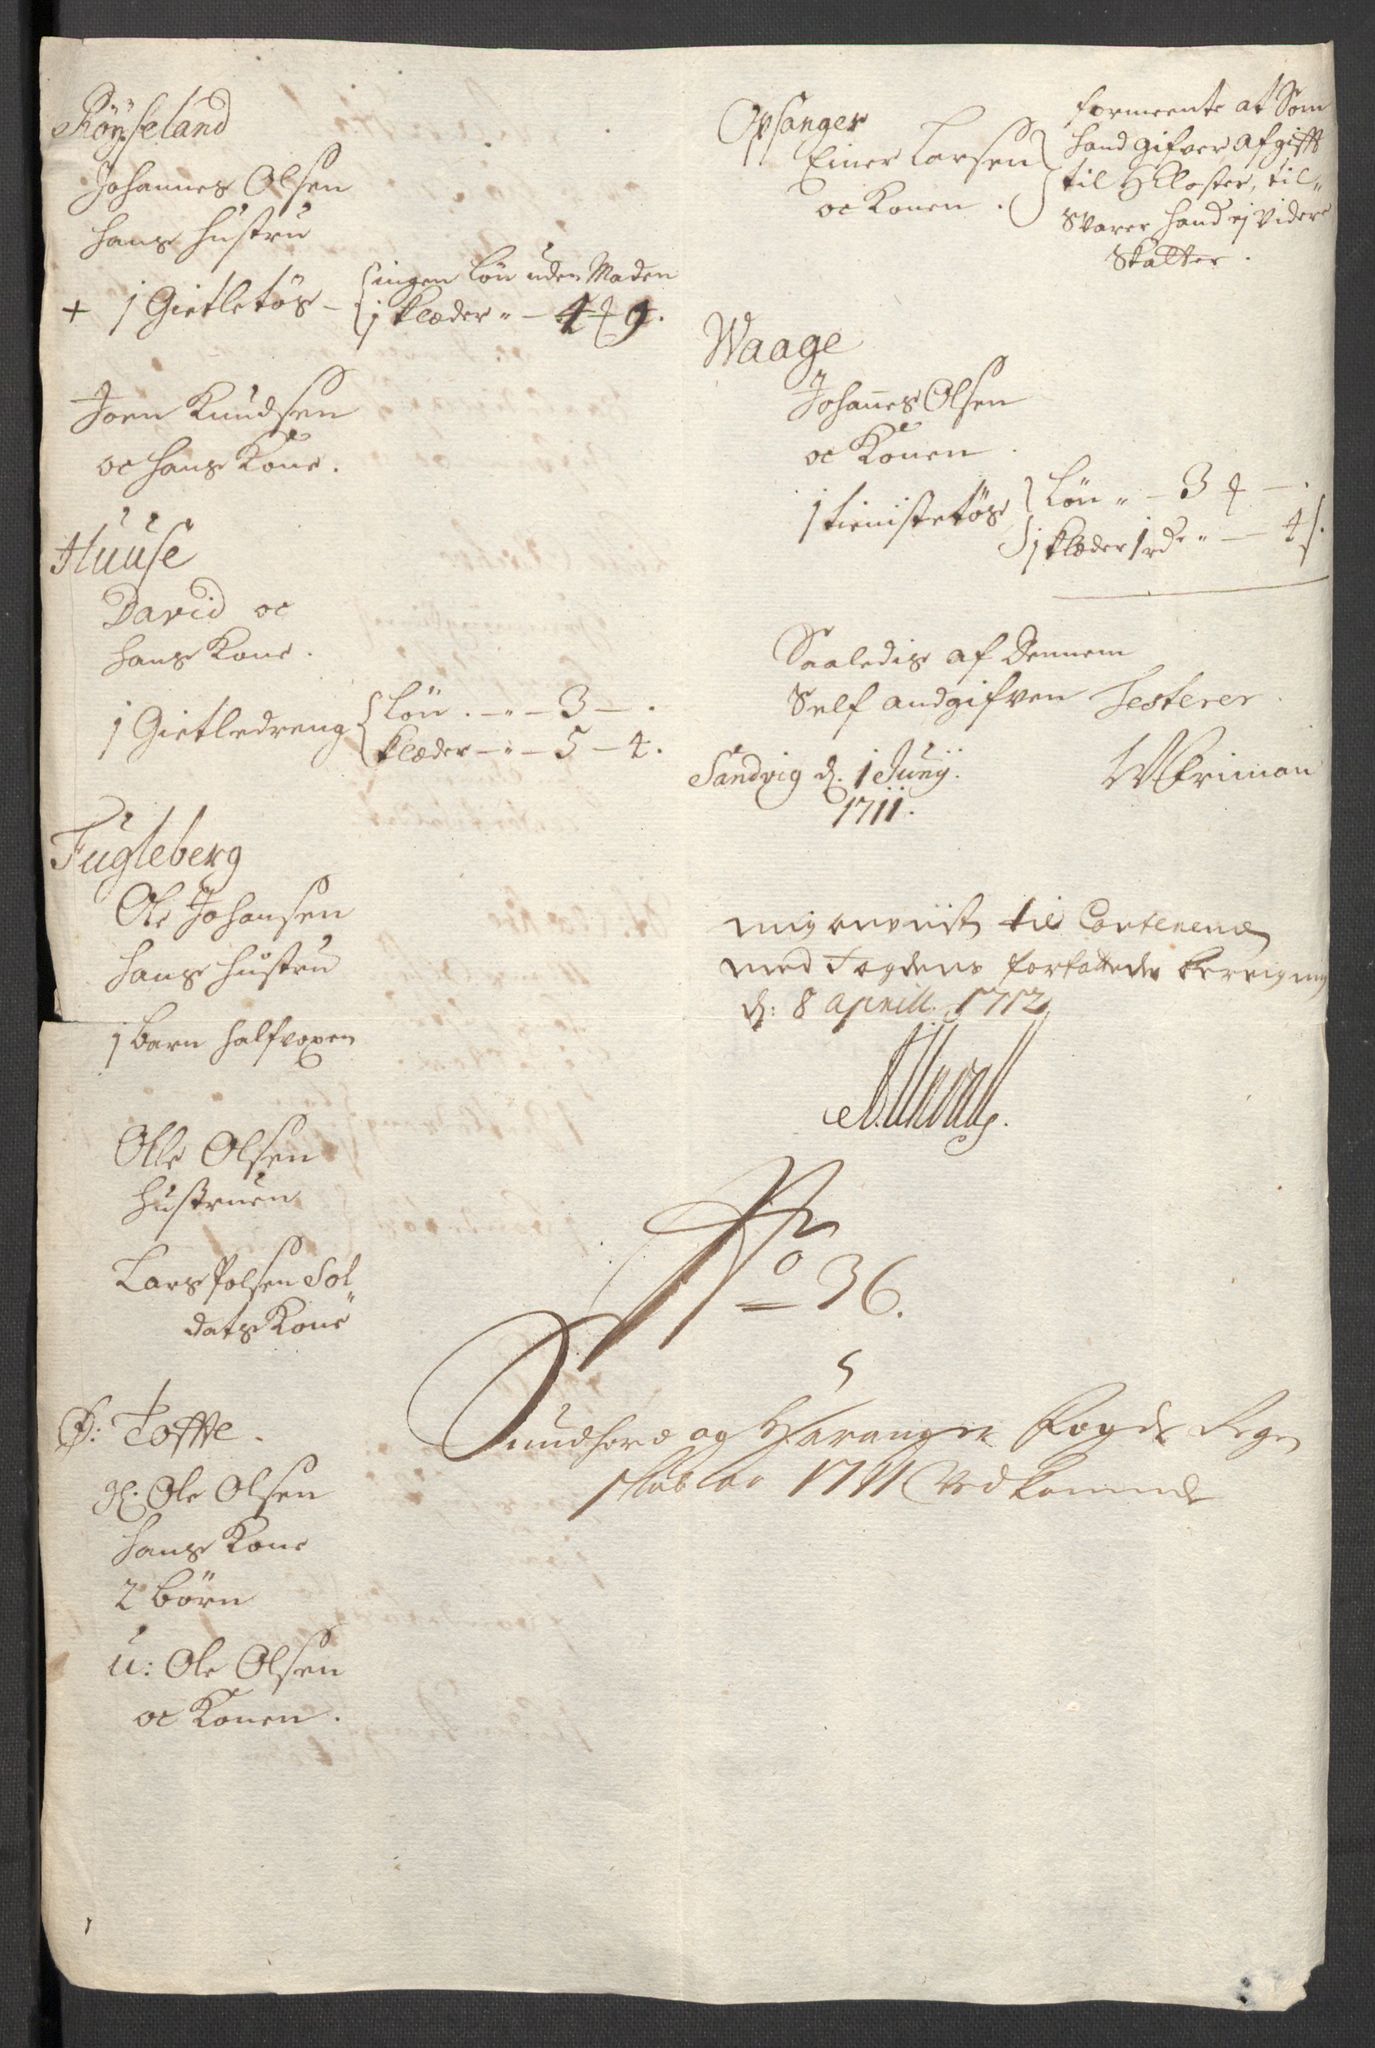 Röyseland
Johannes Olsen
hans hustru
+ 1 Gietletøs – ingen Løn uden Maden
j klæder „ – 4 ƒ 9.
Joen Knudsen
oc hans Kone.
Huuse
David oc
hans Kone.
1 Gietledreng Løn . – „ – 3 – .
klæder – „ – 5 – 4.
Fugleberg
Ole Johansen
hans hustru
1 barn halfvoxen
Olle Olsen
hustruen
Lars Polsen Sol„
dats Kone
Ø: Tofte.
Ole Olsen
hans Kone
2 börn
u: Ole Olsen
oc Konen.
Opsanger
Einer Larsen
oc Konen .
formeente at Som
hand gifver afgifft
til Kloster, til„
Svarer hand ej videre
Skatter.
Waage
Johanes Olsen
oc Konen .
1 tienistetøs Løn „ – 3 ƒ – .
j klæder 1 rdr „ – 4 s.
Saaledis af dennem
Self andgifven Testerer.
Sandvig d. 1 Junij.
1711.
WFriman
mig anviist til
med Fogdens forfattede
d: 8 Aprill 1712
No 36.
5
Sundhord og Haranger Fogde Regen„
skab for 1711 Vedkommende